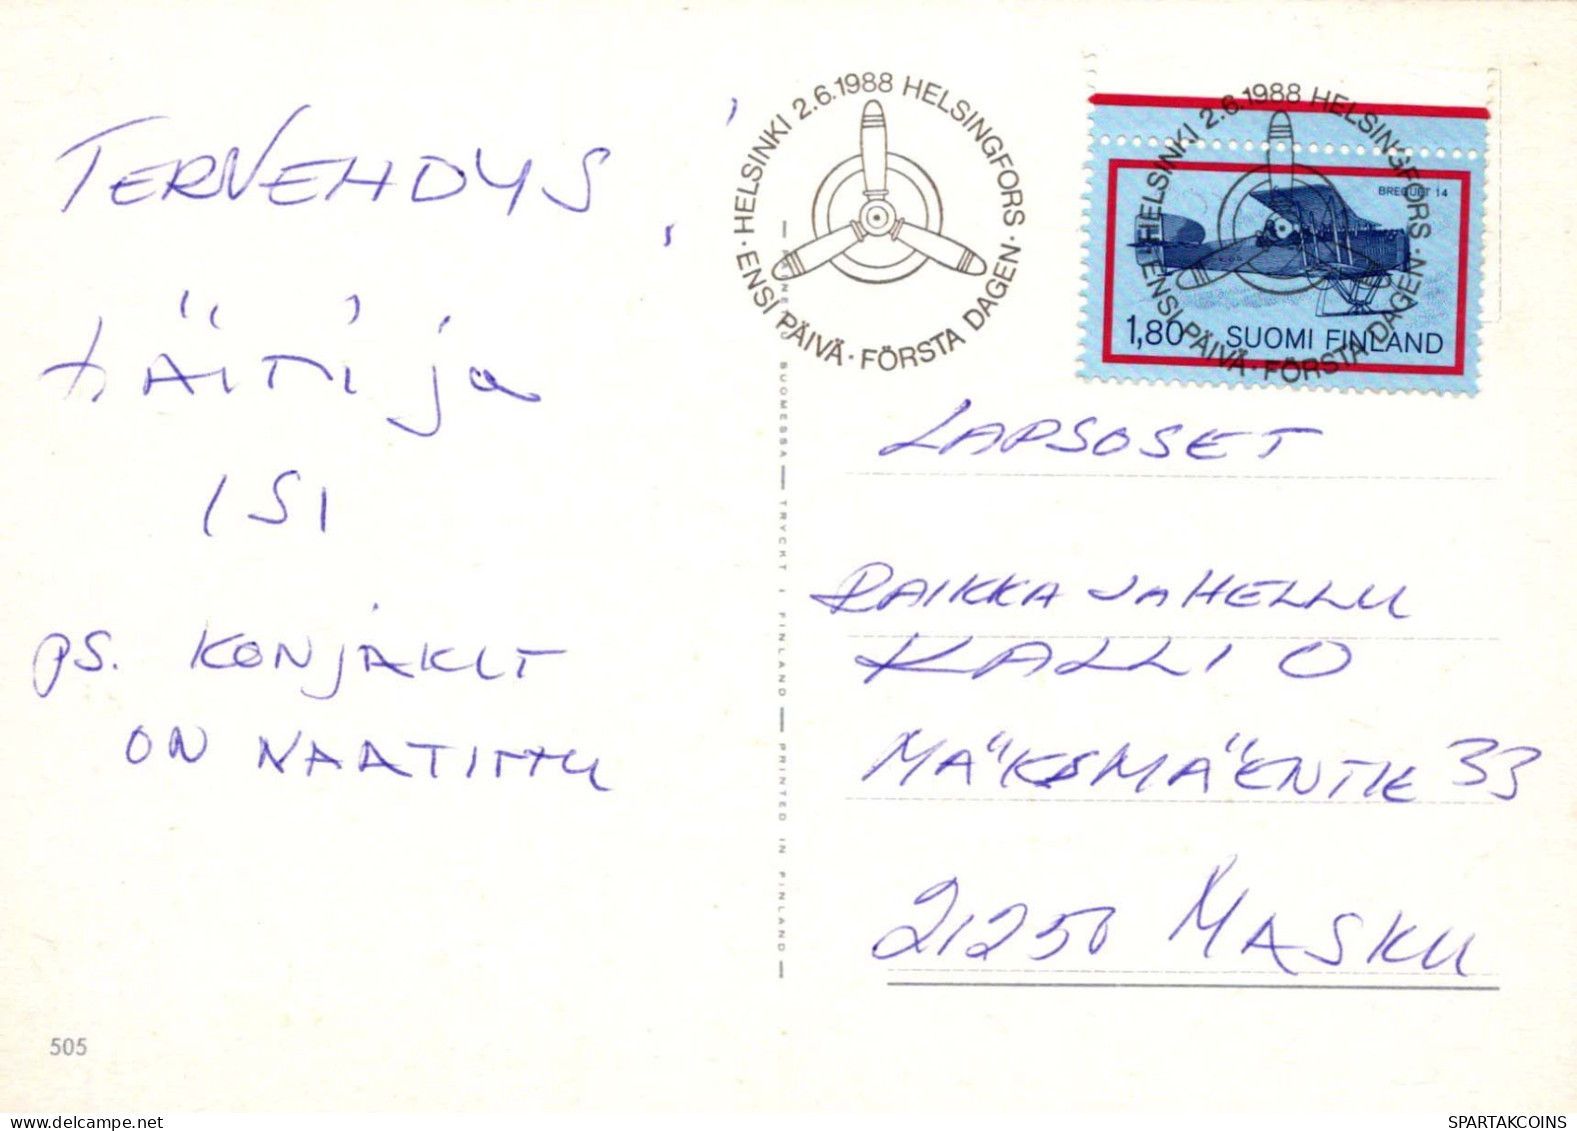 TERVEHDYS,
t. ÄITI ja
ISI
PS. KONJAKIT
ON NAATITTU
HELSINKI 2.6.1988 HELSINGFORS
· ENSI PÄIVÄ · FÖRSTA DAGEN ·
HELSINKI 2.6.1988 HELSINGFORS
· ENSI PÄIVÄ · FÖRSTA DAGEN ·
BREGUET 14
1,80 SUOMI FINLAND
SUOMESSA — TRYCKT I FINLAND — PRINTED IN FINLAND —
LAPSOSET
RAIKKA JA HELLU
KALLIO
MÄKSMÄENTIE 33
21250 MASKU
505
SPARTAKCOINS
delcampe.net